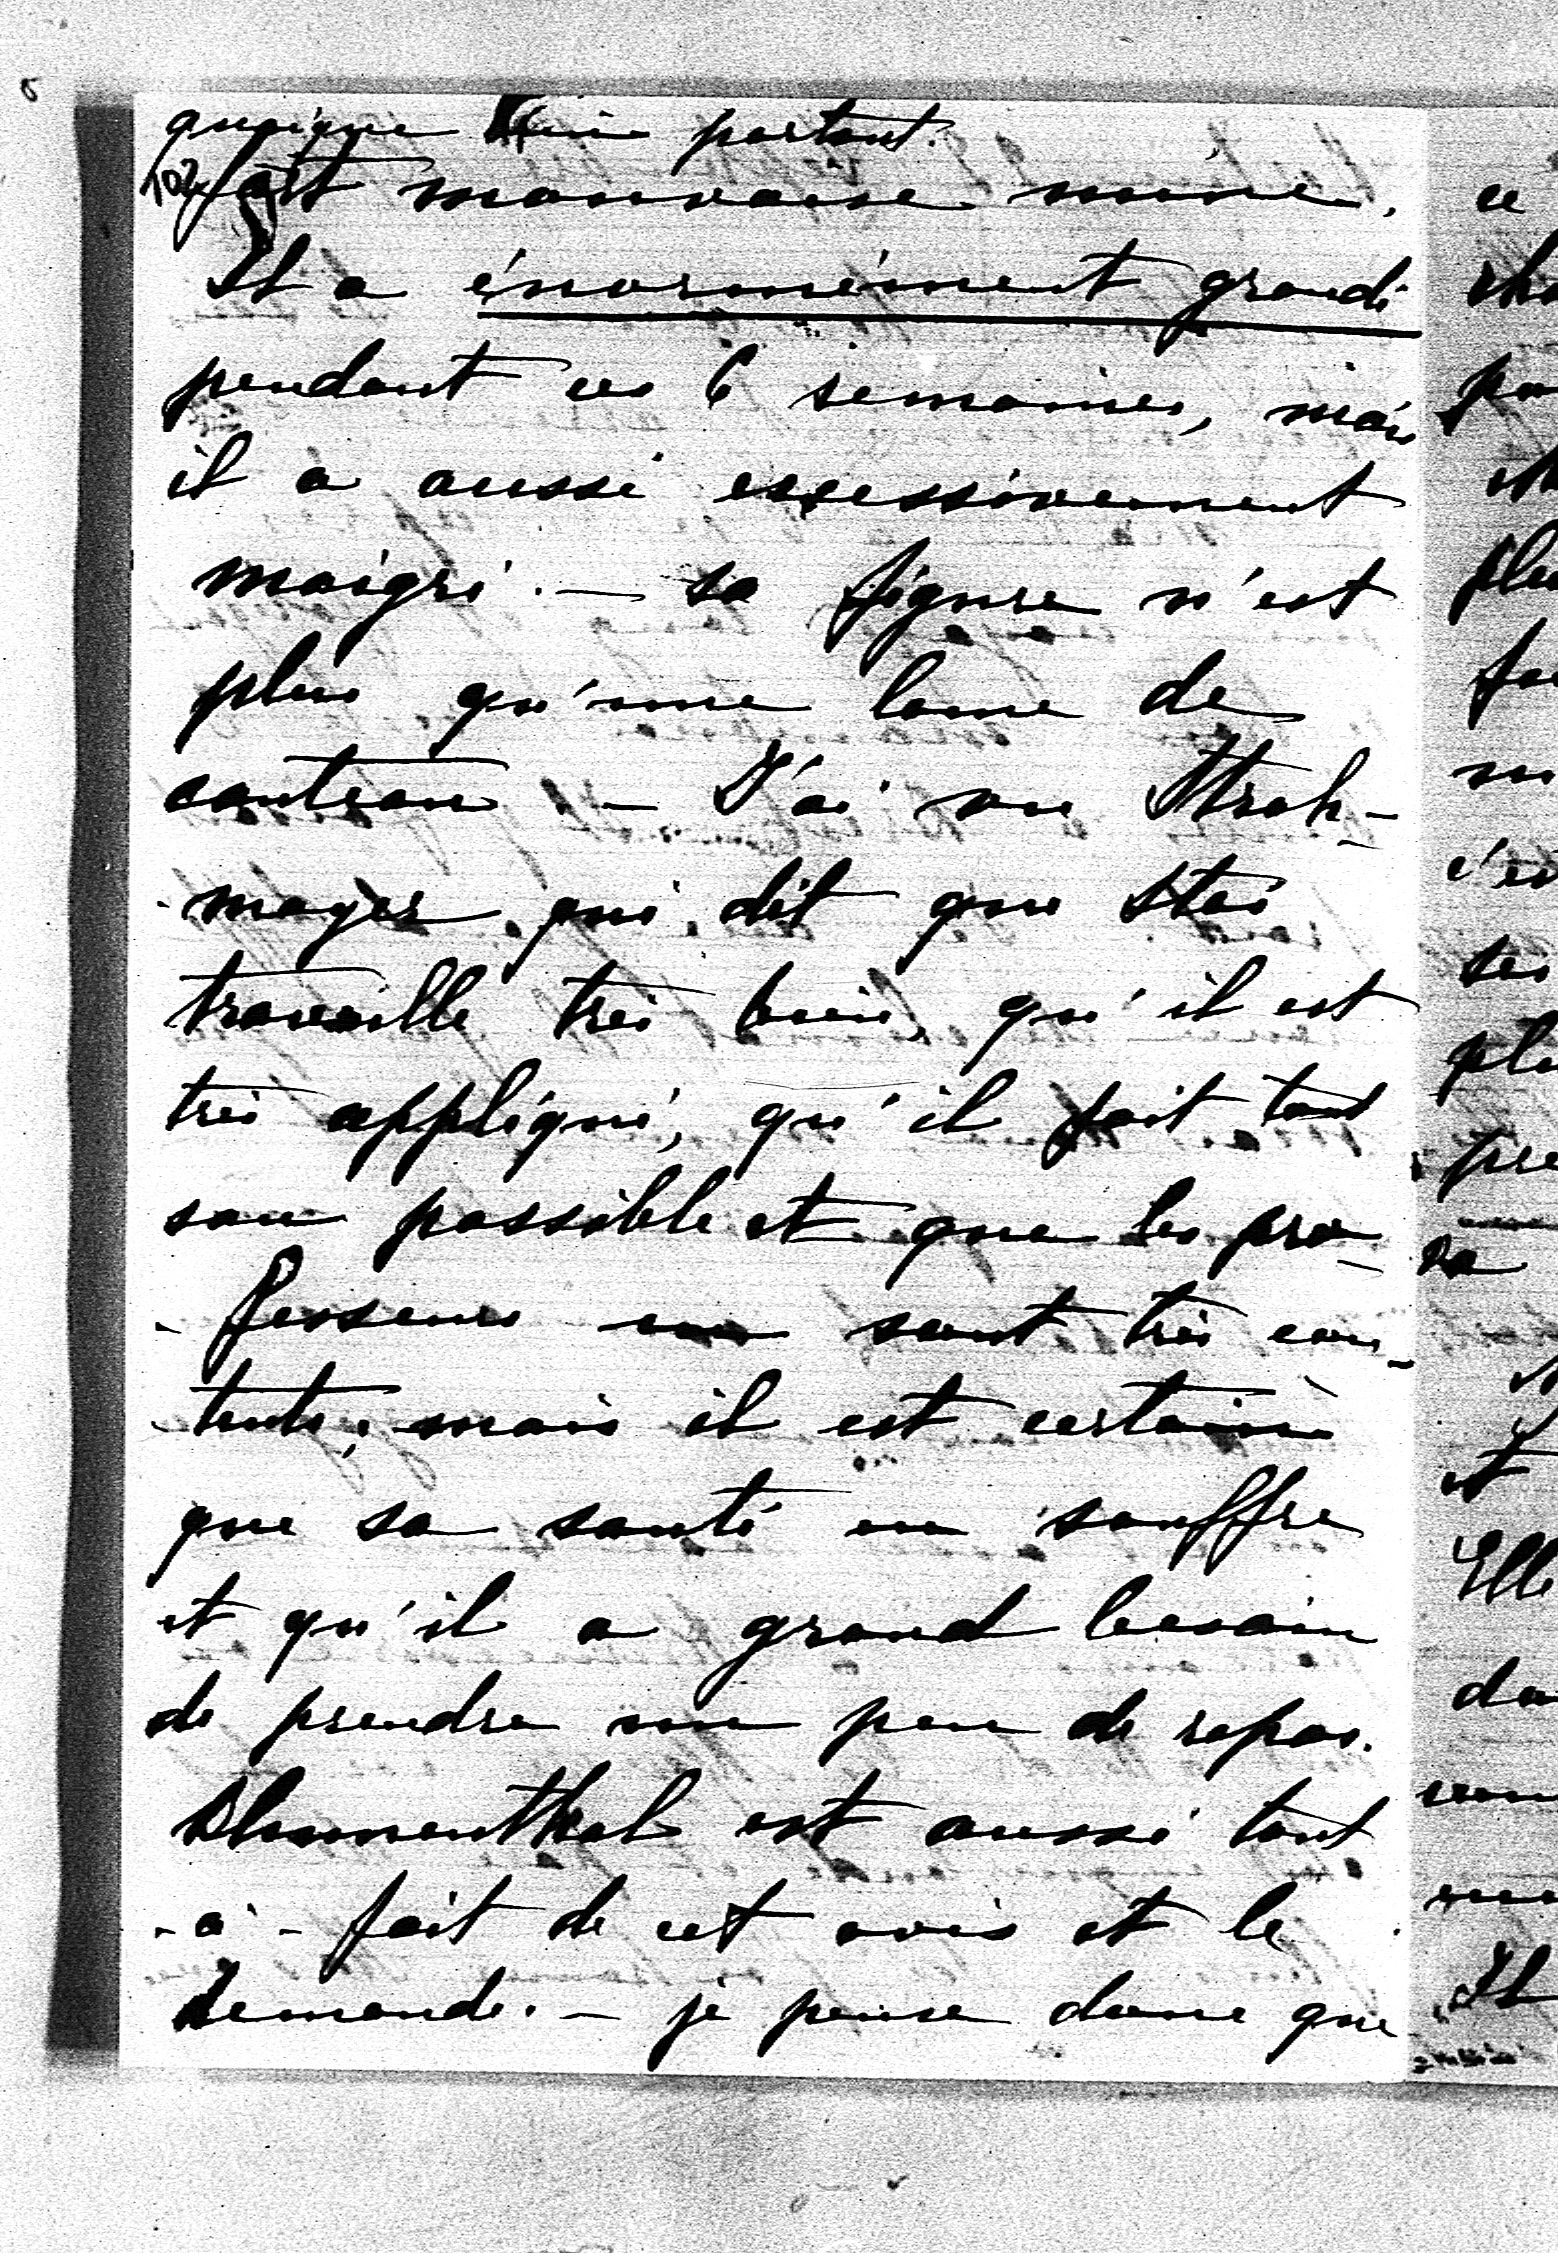 quoique bien portant.
102 fait mauvaise mine.
Il a énormément grandi
pendant ces 6 semaines, mais
il a aussi excessivement
maigri. — sa figure n'est
plus qu'une lame de
couteau — J'ai vu Stroh-
-mayer qui dit que Stas
travaille très bien, qu'il est
très appliqué, qu'il fait tout
son possible et que les pro-
-fesseurs en sont très con-
-tents; mais il est certain
que sa santé en souffre
et qu'il a grand besoin
de prendre un peu de repos.
Blumenthal est aussi tout
-à-fait de cet avis et le
demande. — je pense donc que